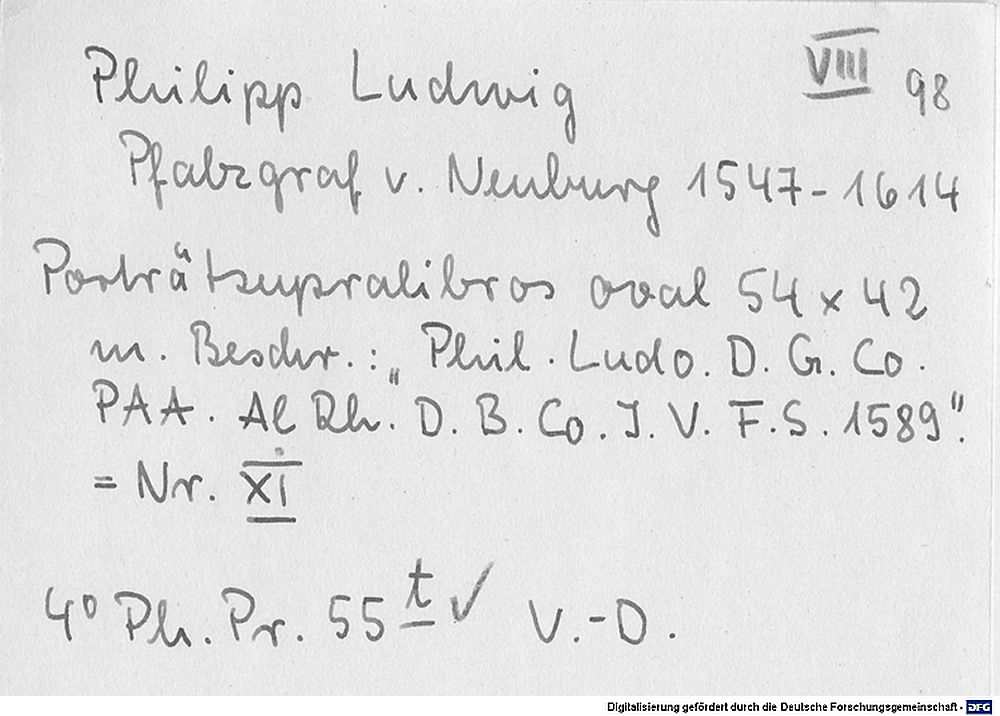 Philipp Ludwig VIII 98
Pfalzgraf v. Neuburg 1547-1614
Porträtsupralibros oval 54 x 42
m. Beschr.: „Phil. Ludo. D. G. Co.
PAA. Al Rh. D. B. Co. J. V. F. S. 1589".
= Nr. XI
4° Ph. Pr. 55 t ✓ V.-D.
Digitalisierung gefördert durch die Deutsche Forschungsgemeinschaft - DFG